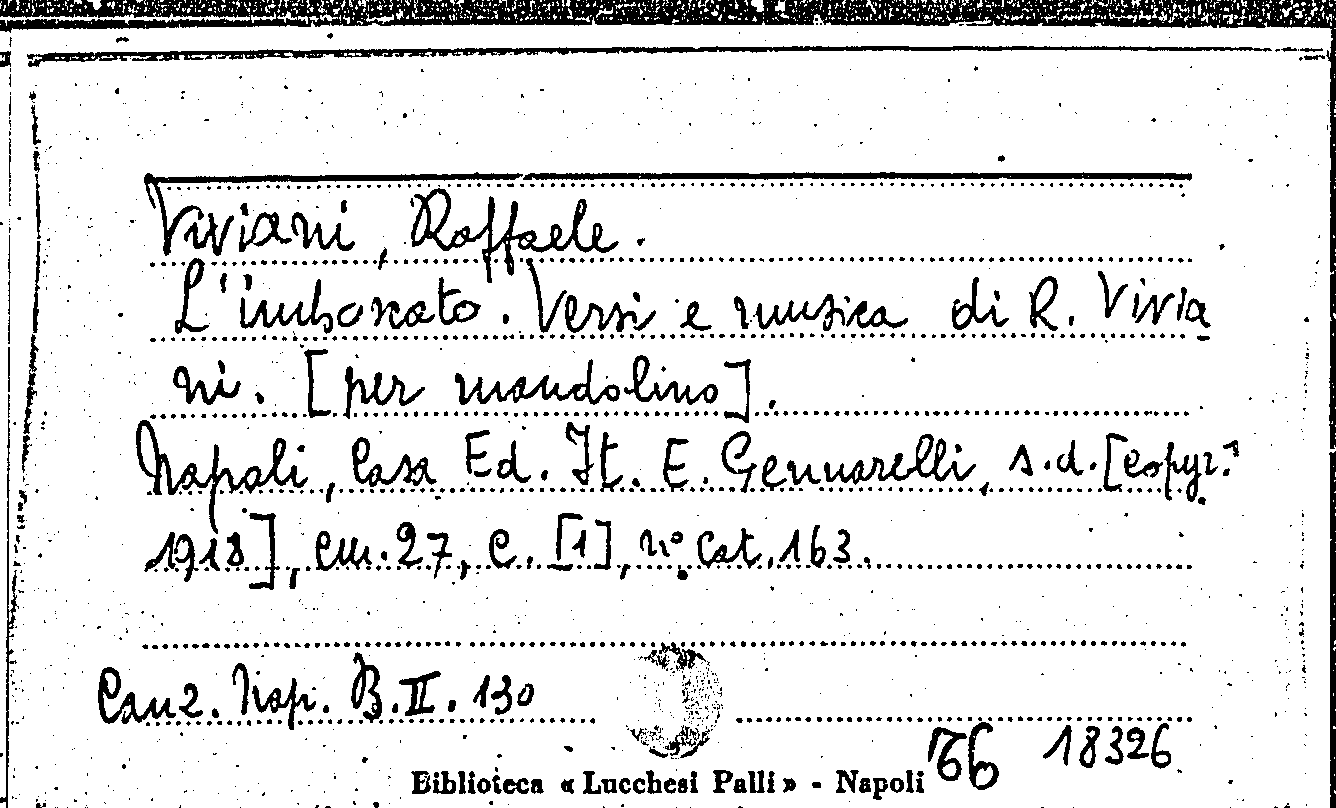 Viviani, Raffaele.
L'imboscato. Versi e musica di R. Vivia
ni. [per mandolino].
Napoli, Casa Ed. It. E. Gennarelli, s.d. [copyr.
1918], cm. 27, c. [1], n° cat. 163.
Canz. Nap. B. II. 130
66 18326
Biblioteca « Lucchesi Palli » - Napoli